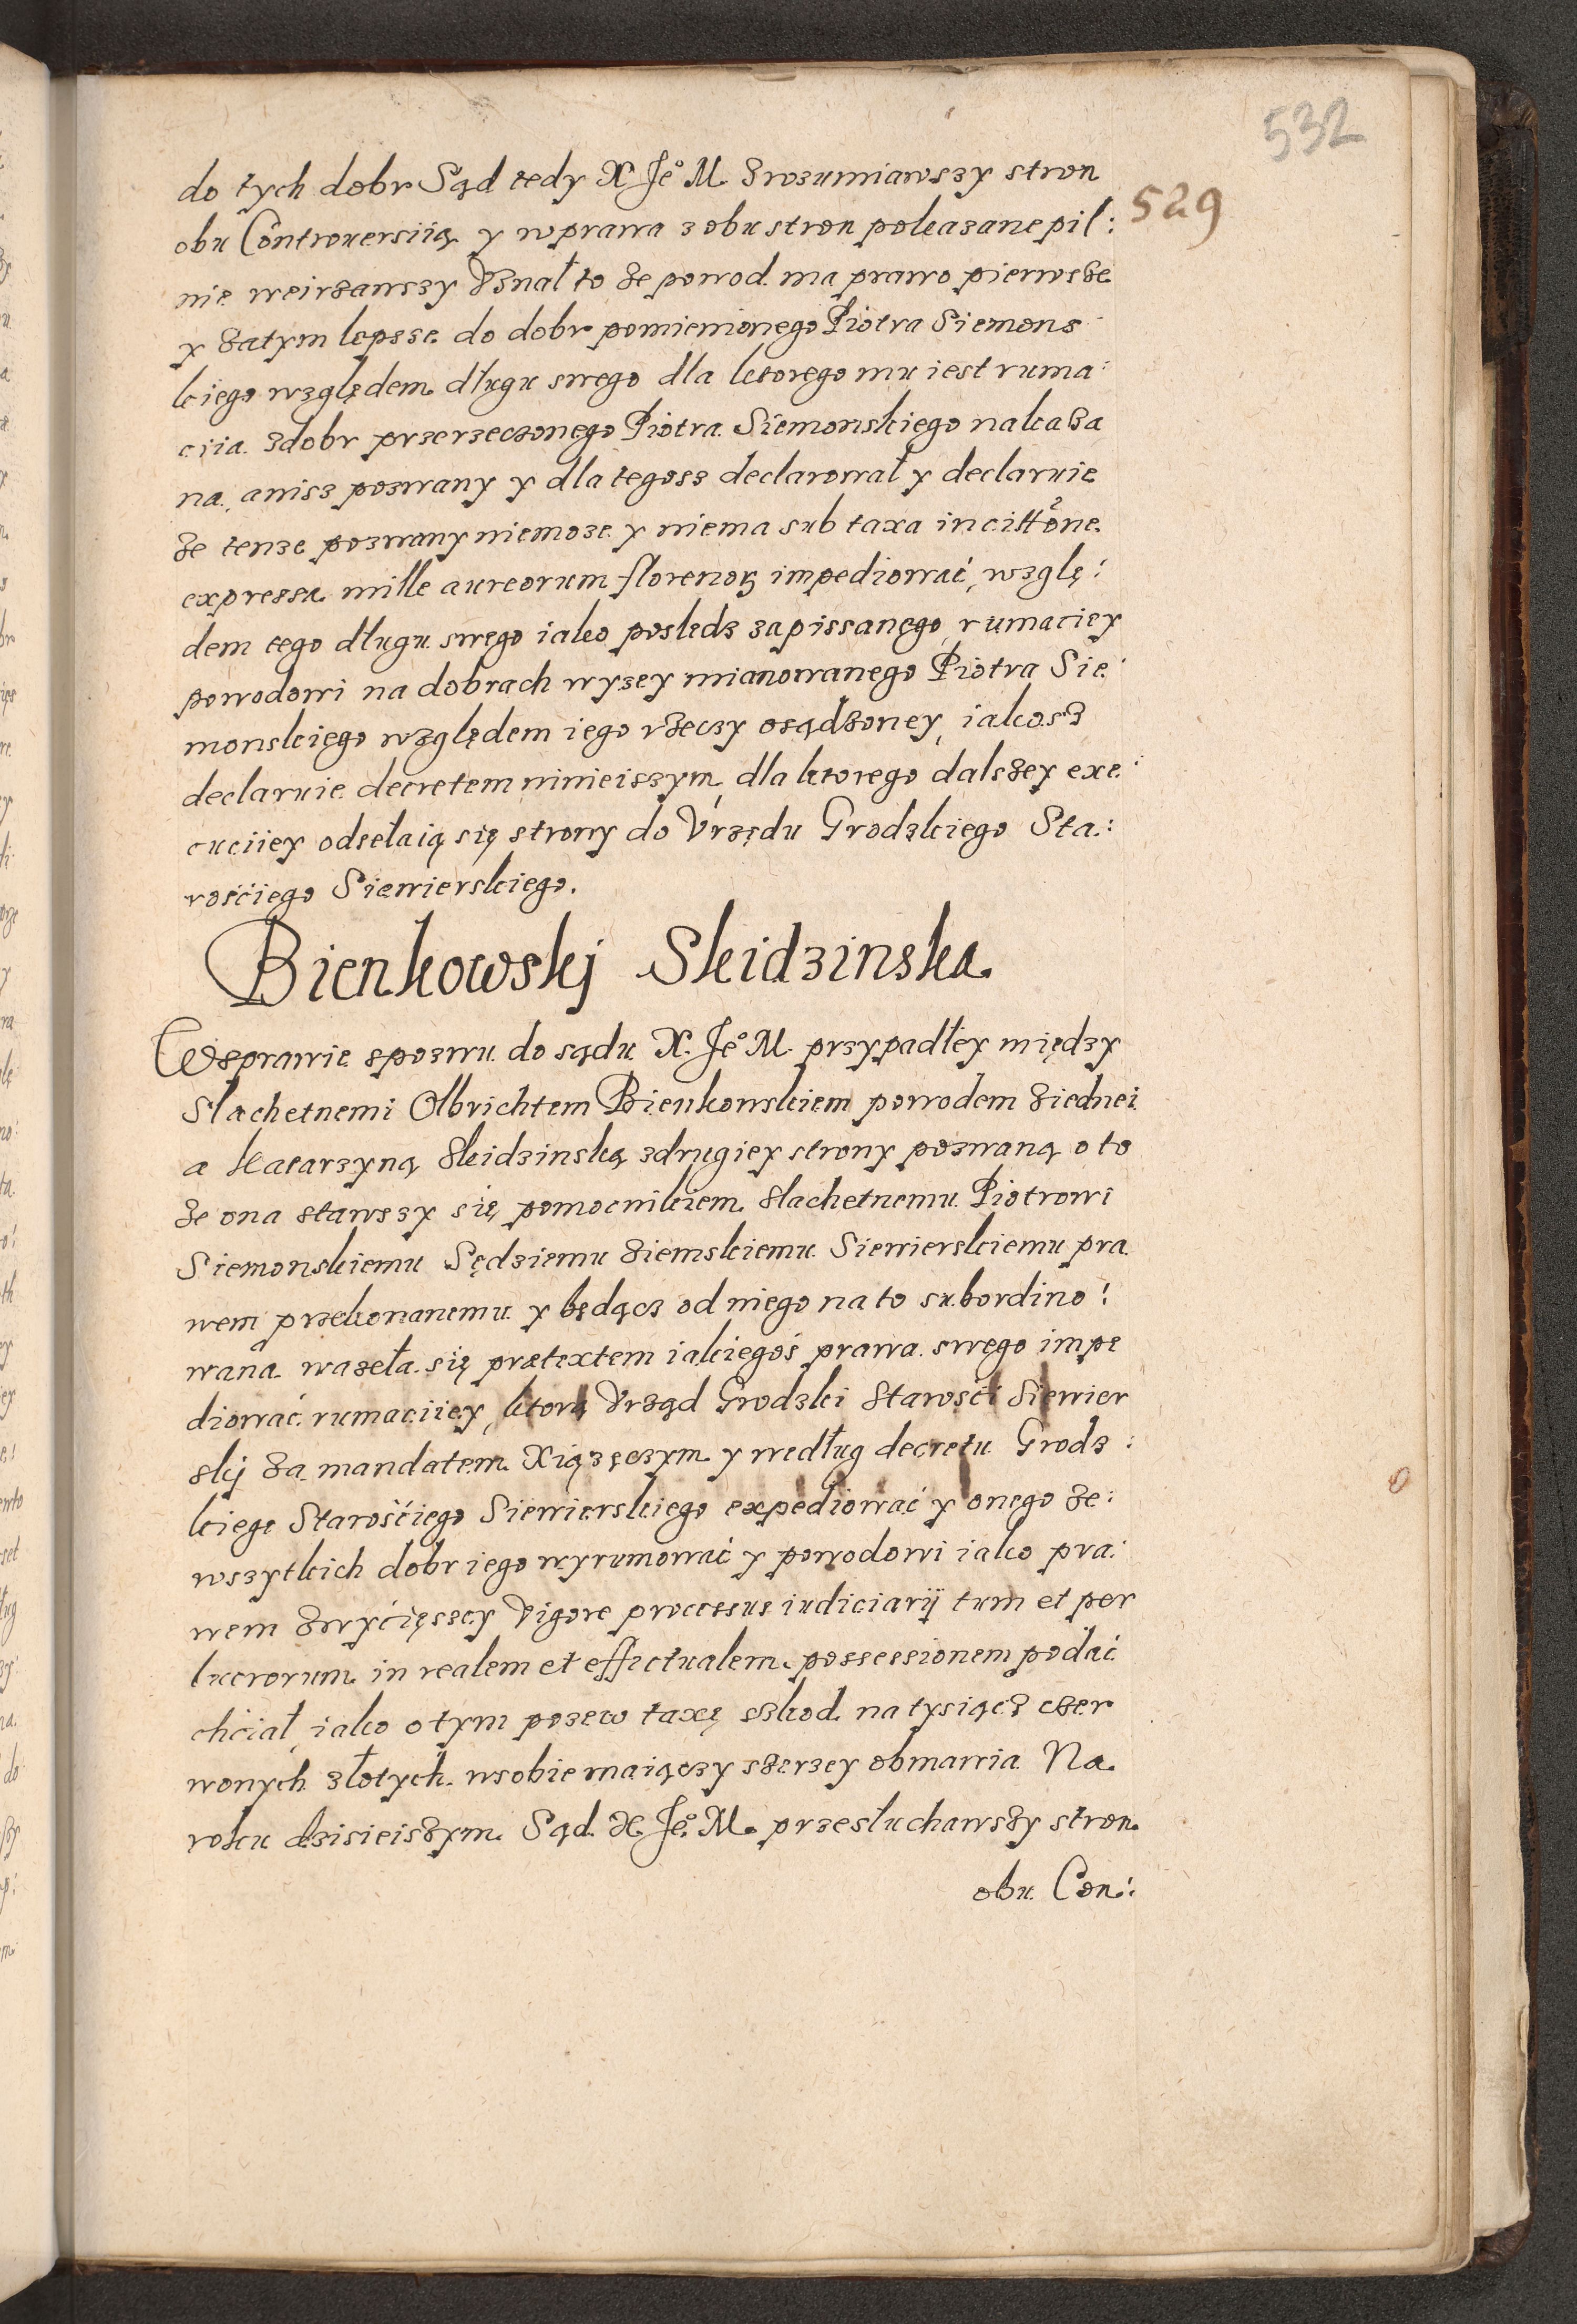 532
529
do tych dobr Sąd tedy X Je° M. Zrozumiawszy stron
obu Controuersiią y wprawa z obu stron pokazane pil:
nie weirzawszy Vznał to że powod. ma prawo pierwsze
y zatym lepsze. do dobr pomienionego Piotra Siemons
kiego względem. długu swego dla ktorego mu iest ruma:
ciia. zdobr przerzeczonego Piotra. Siemonskiego nakaza
na., anisz pozwany y dla tegosz declarował y declaruie
że tenze pozwany niemoze. y niema sub taxa in citt°ne.
expressa. mille aureorum florenoꝝ impediować, wzglę:
dem tego długu. swego iako posledz zapissanego, rumaciey
powodowi na dobrach wyzey mianowanego Piotra Sie:
monskięgo względem iego rzeczy osądzoney, iakosz
declaruie. decretem ninieiszym, dla ktorego dalszey exe:
cuciiey odsełaią się strony do Vrzędu Grodzkiego Sta.:
rośćiego Siewierskiego.
Bienkowskj Skidzinska.
Wsprawie spozwu. do sądu. X. Je° M. przypadłey między
Slachetnemi Olbrichtem Bienkowskiem powodem ziednei
a Katarzyną Skidzinską zdrugiey strony pozwaną o to
że ona stawszy się pomocnikiem. slachetnemu. Piotrowi
Siemonskiemu Sędziemu ziemskiemu. Siewierskiemu pra.
wem przekonanemu. y będącz od niego na to subordino:
wana. wazeła. się prætextem iakiegoś prawa. swego impe
diować. rumaciiey, ktorą Vrząd Grodzki Starośći Siewier
skj za. mandatem. Xiązęczym. y według decretu. Grodz:
kiego Starośćiego Siewierskiego expediować y onego ze:
wszytkich dobr iego wyrumować y powodowi iako pra:
wem zwyćięsscy Vigore processus iudiciarij tum et per
lucrorum. in realem et effectualem. possessionem podać
chćiał, iako o tym pozew taxę szkod. na tysiącz czer
wonych. złotych. wsobie maiączy szerzey obmawia. Na.
roku dzisieiszym. Sąd. X. Je°. M. przesłuchawszy stron.
obu. Con: